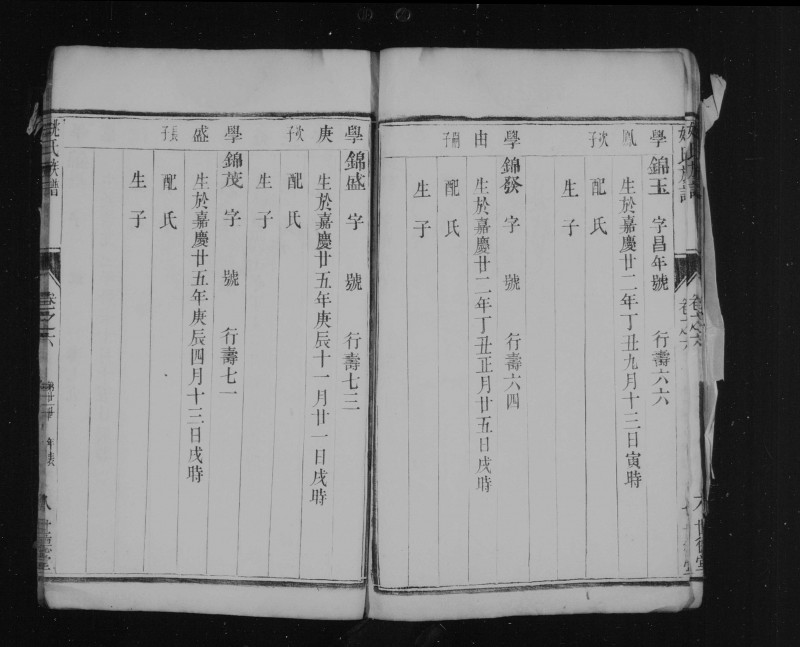 學鳳次子
錦玉 字昌年號 行壽六六
生於嘉慶廿二年丁丑九月十三日寅時
配氏
生子
學由嗣子
錦發 字 號 行壽六四
生於嘉慶廿二年丁丑正月廿五日戌時
配氏
生子
學庚次子
錦盛 字 號 行壽七三
生於嘉慶廿五年庚辰十一月廿一日戌時
配氏
生子
學盛長子
錦茂 字 號 行壽七一
生於嘉慶廿五年庚辰四月十三日戌時
配氏
生子
姚氏族譜 卷之六 世德堂